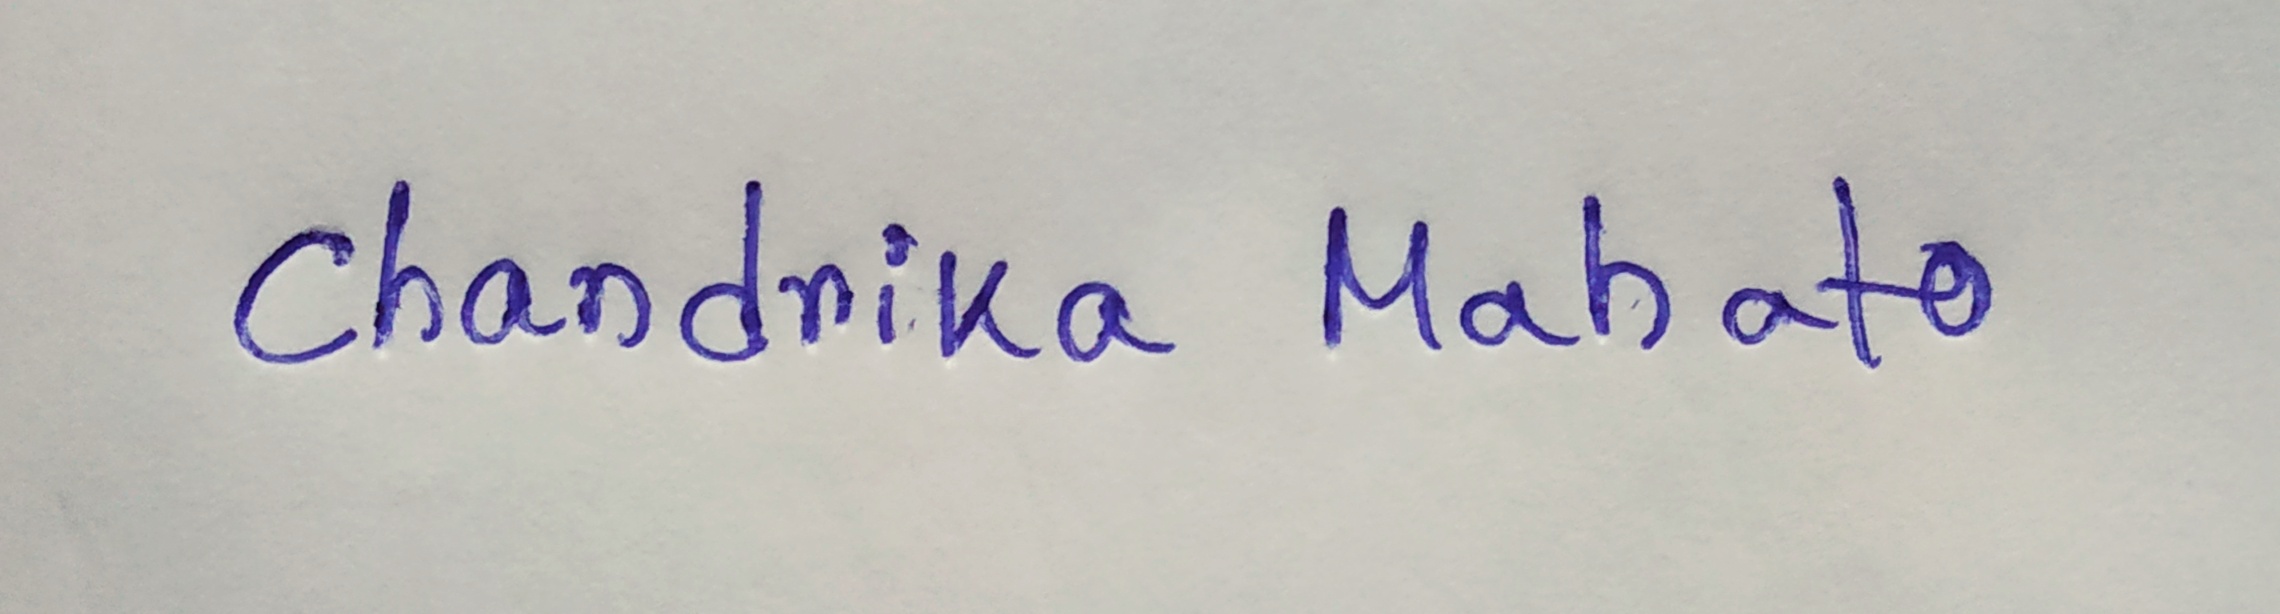 Chandrika Mahato